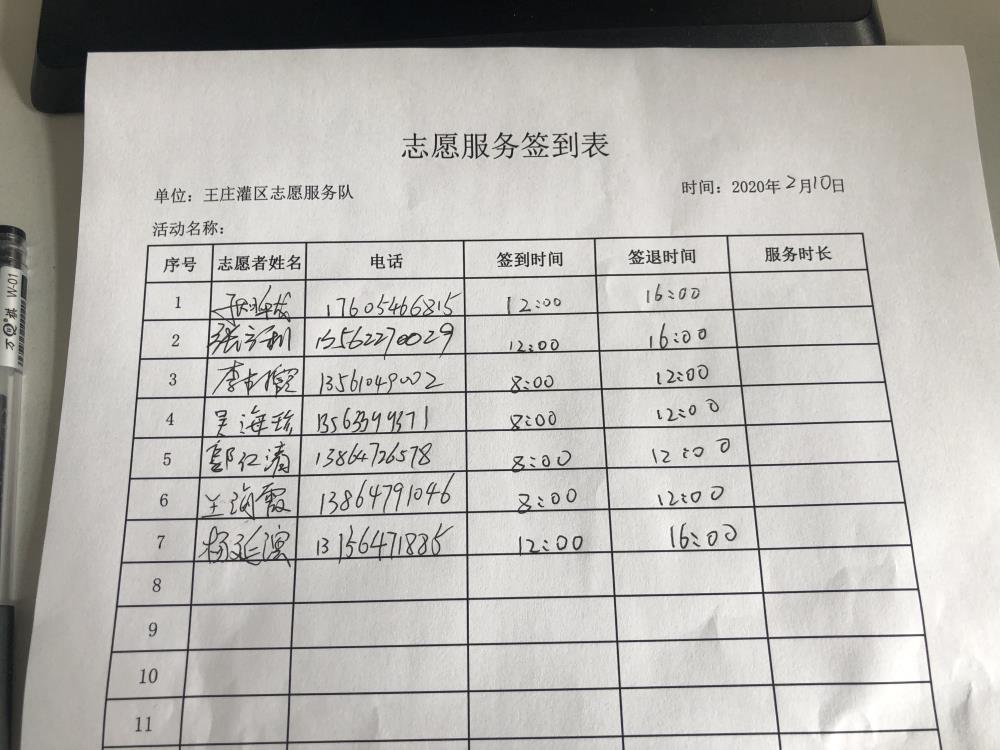 志愿服务签到表
单位：王庄灌区志愿服务队 时间：2020年2月10日
活动名称：
序号 志愿者姓名 电话 签到时间 签退时间 服务时长
1 17605466815 12:00 16:00
2 张立利 13562270029 12:00 16:00
3 13561049002 8:00 12:00
4 吴海珍 13563399371 8:00 12:00
5 郭红涛 13864726578 8:00 12:00
6 王海霞 13864791046 8:00 12:00
7 杨延滨 13156471885 12:00 16:00
8
9
10
11
W-01